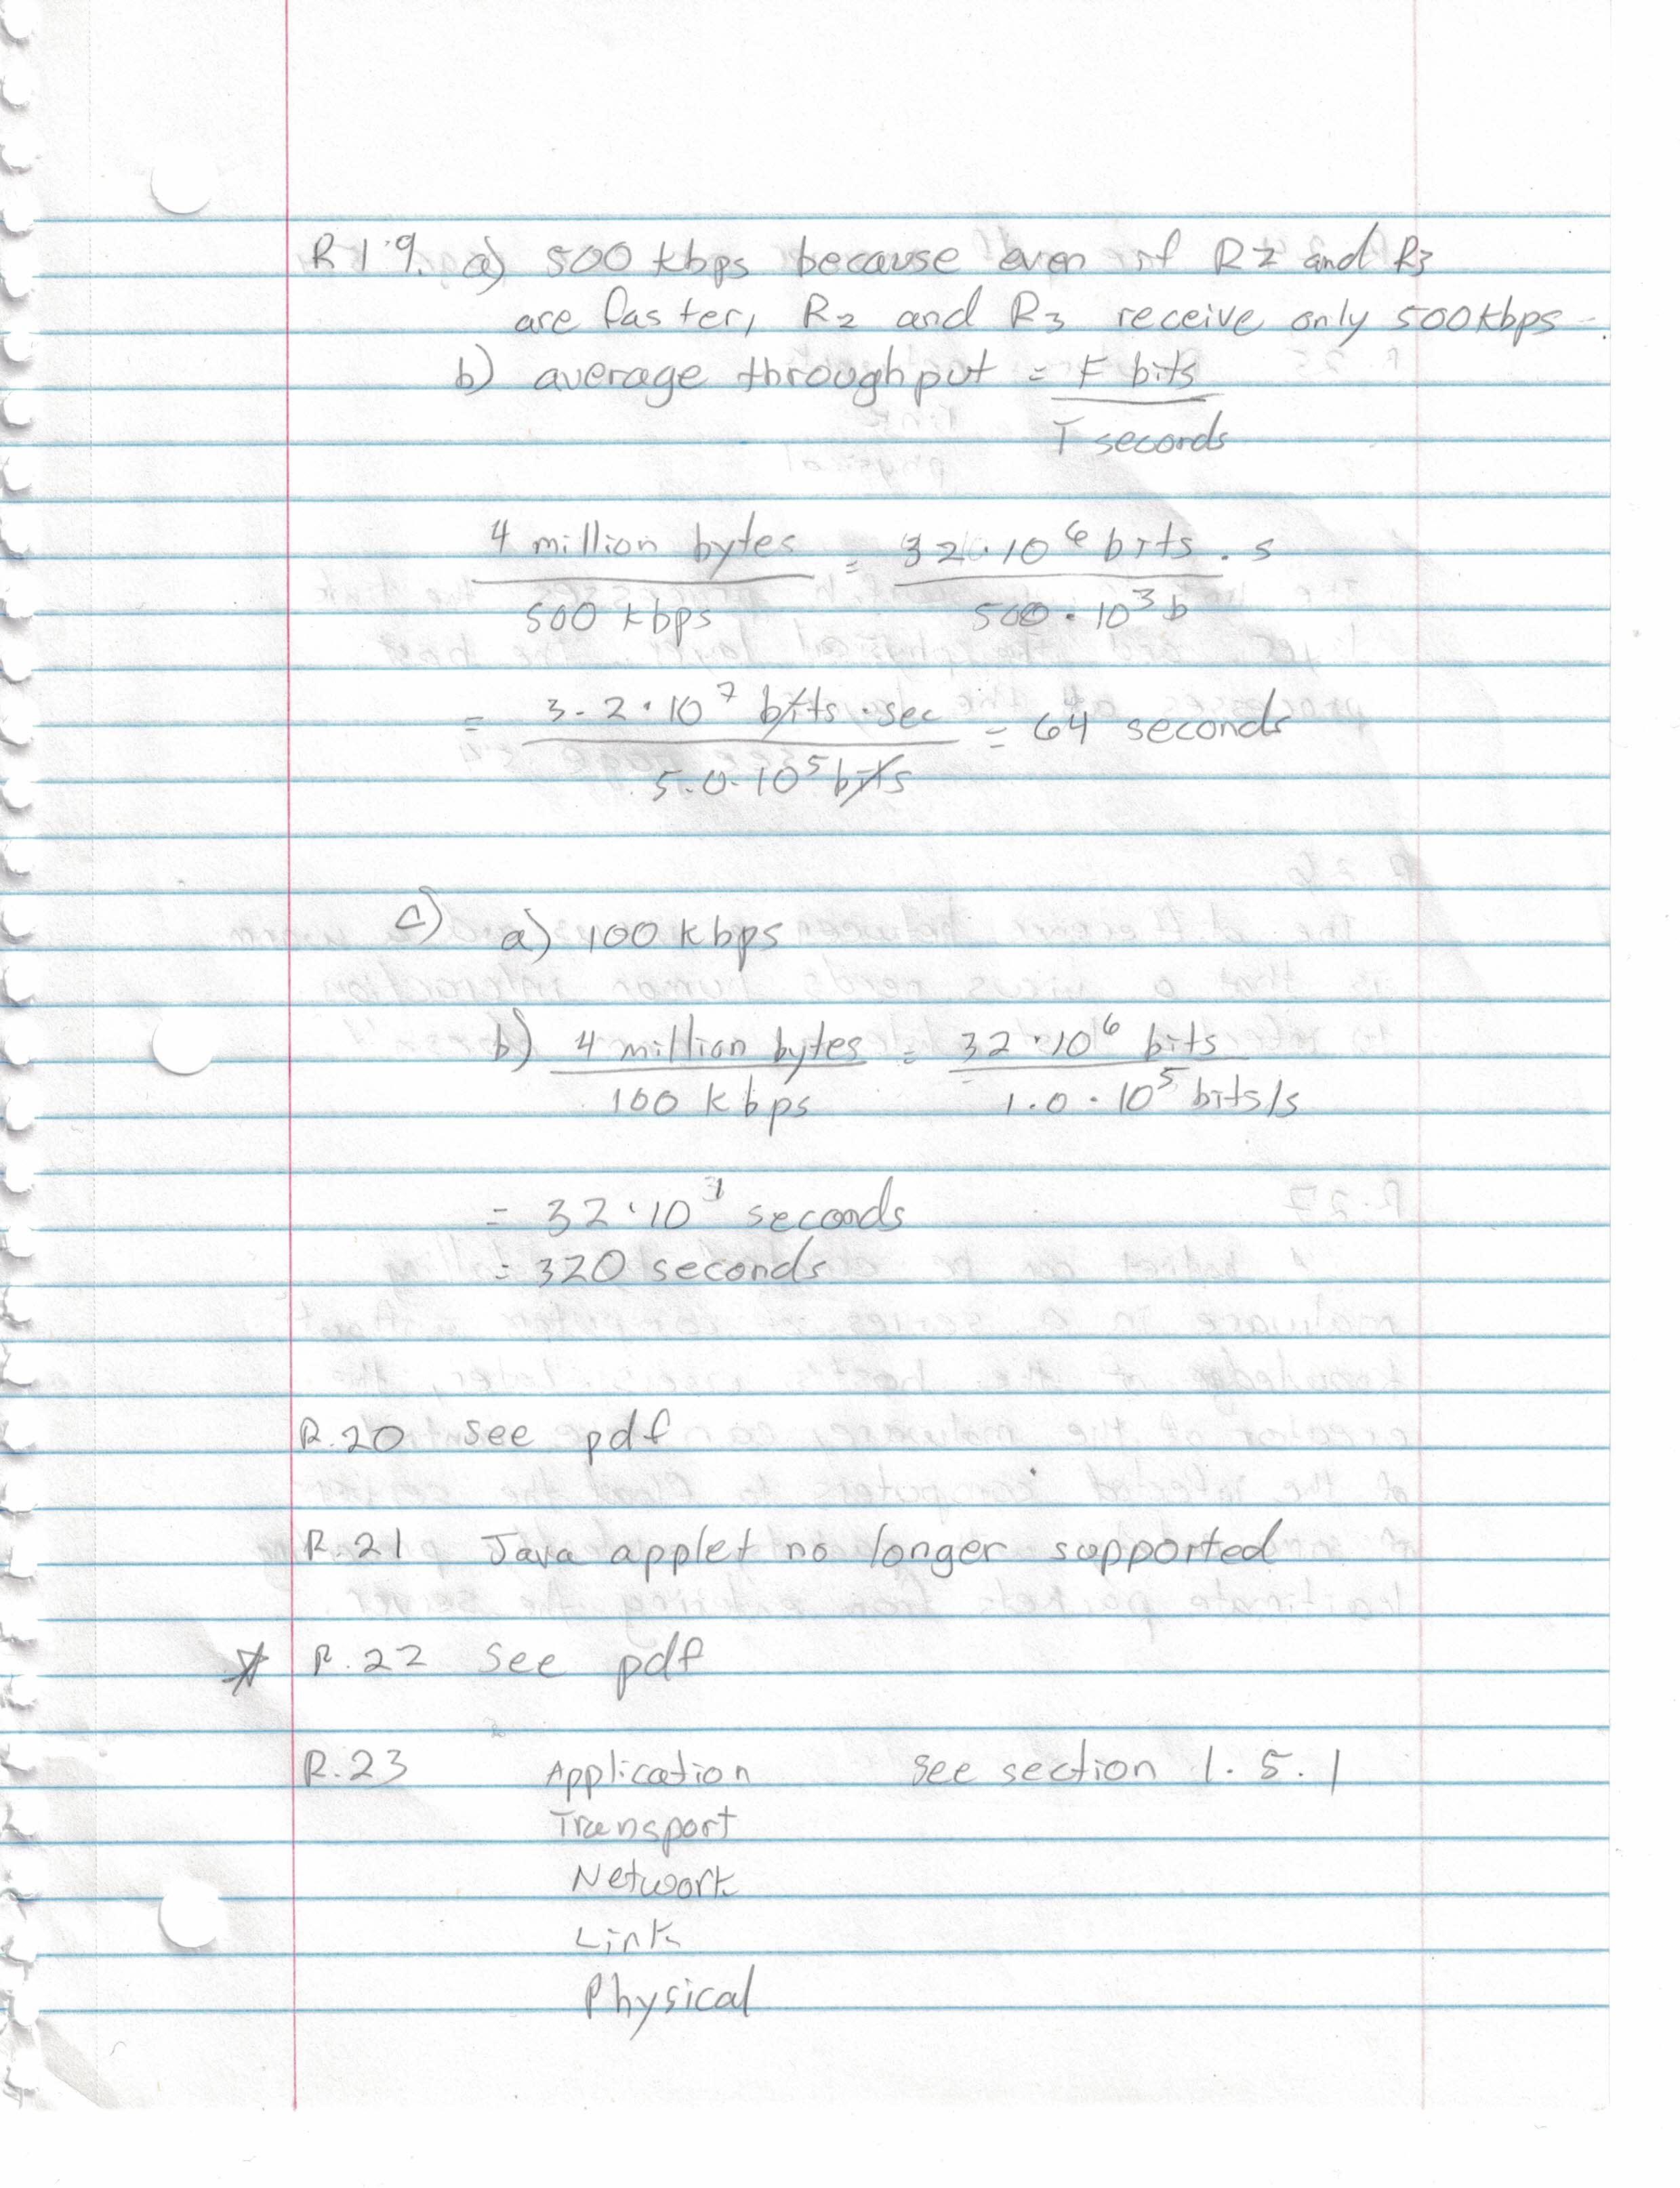 R19. a) 500 kbps because even if R2 and R3
are faster, R2 and R3 receive only 500kbps.
b) average throughput = F bits
T seconds
4 million bytes = 32·10^6 bits · s
500 kbps 500·10^3 b
= 3.2·10^7 bits·sec = 64 seconds
5.0·10^5 bits
c) a) 100 kbps
b) 4 million bytes = 32·10^6 bits
100 kbps 1.0·10^5 bits/s
= 32·10^1 seconds
= 320 seconds
R.20 see pdf
R.21 Java applet no longer supported
* R.22 see pdf
R.23 Application see section 1.5.1
Transport
Network
Link
Physical